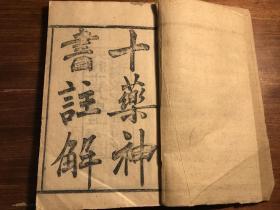 十藥神
書註解